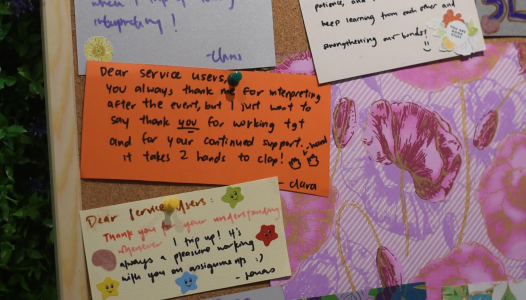 when I trip up
interpreting!
- Clara
patience, and
keep learning from each other and
strengthening our bonds!
Dear Service Users,
You always thank me for interpreting
after the event, but I just want to
say thank you for working tgt
and for your continued support.
it takes 2 hands to clap!
- Clara
Dear Service Users:
Thank you for your understanding
whenever I trip up! It's
always a pleasure working
with you on assignments :)
- Jonas